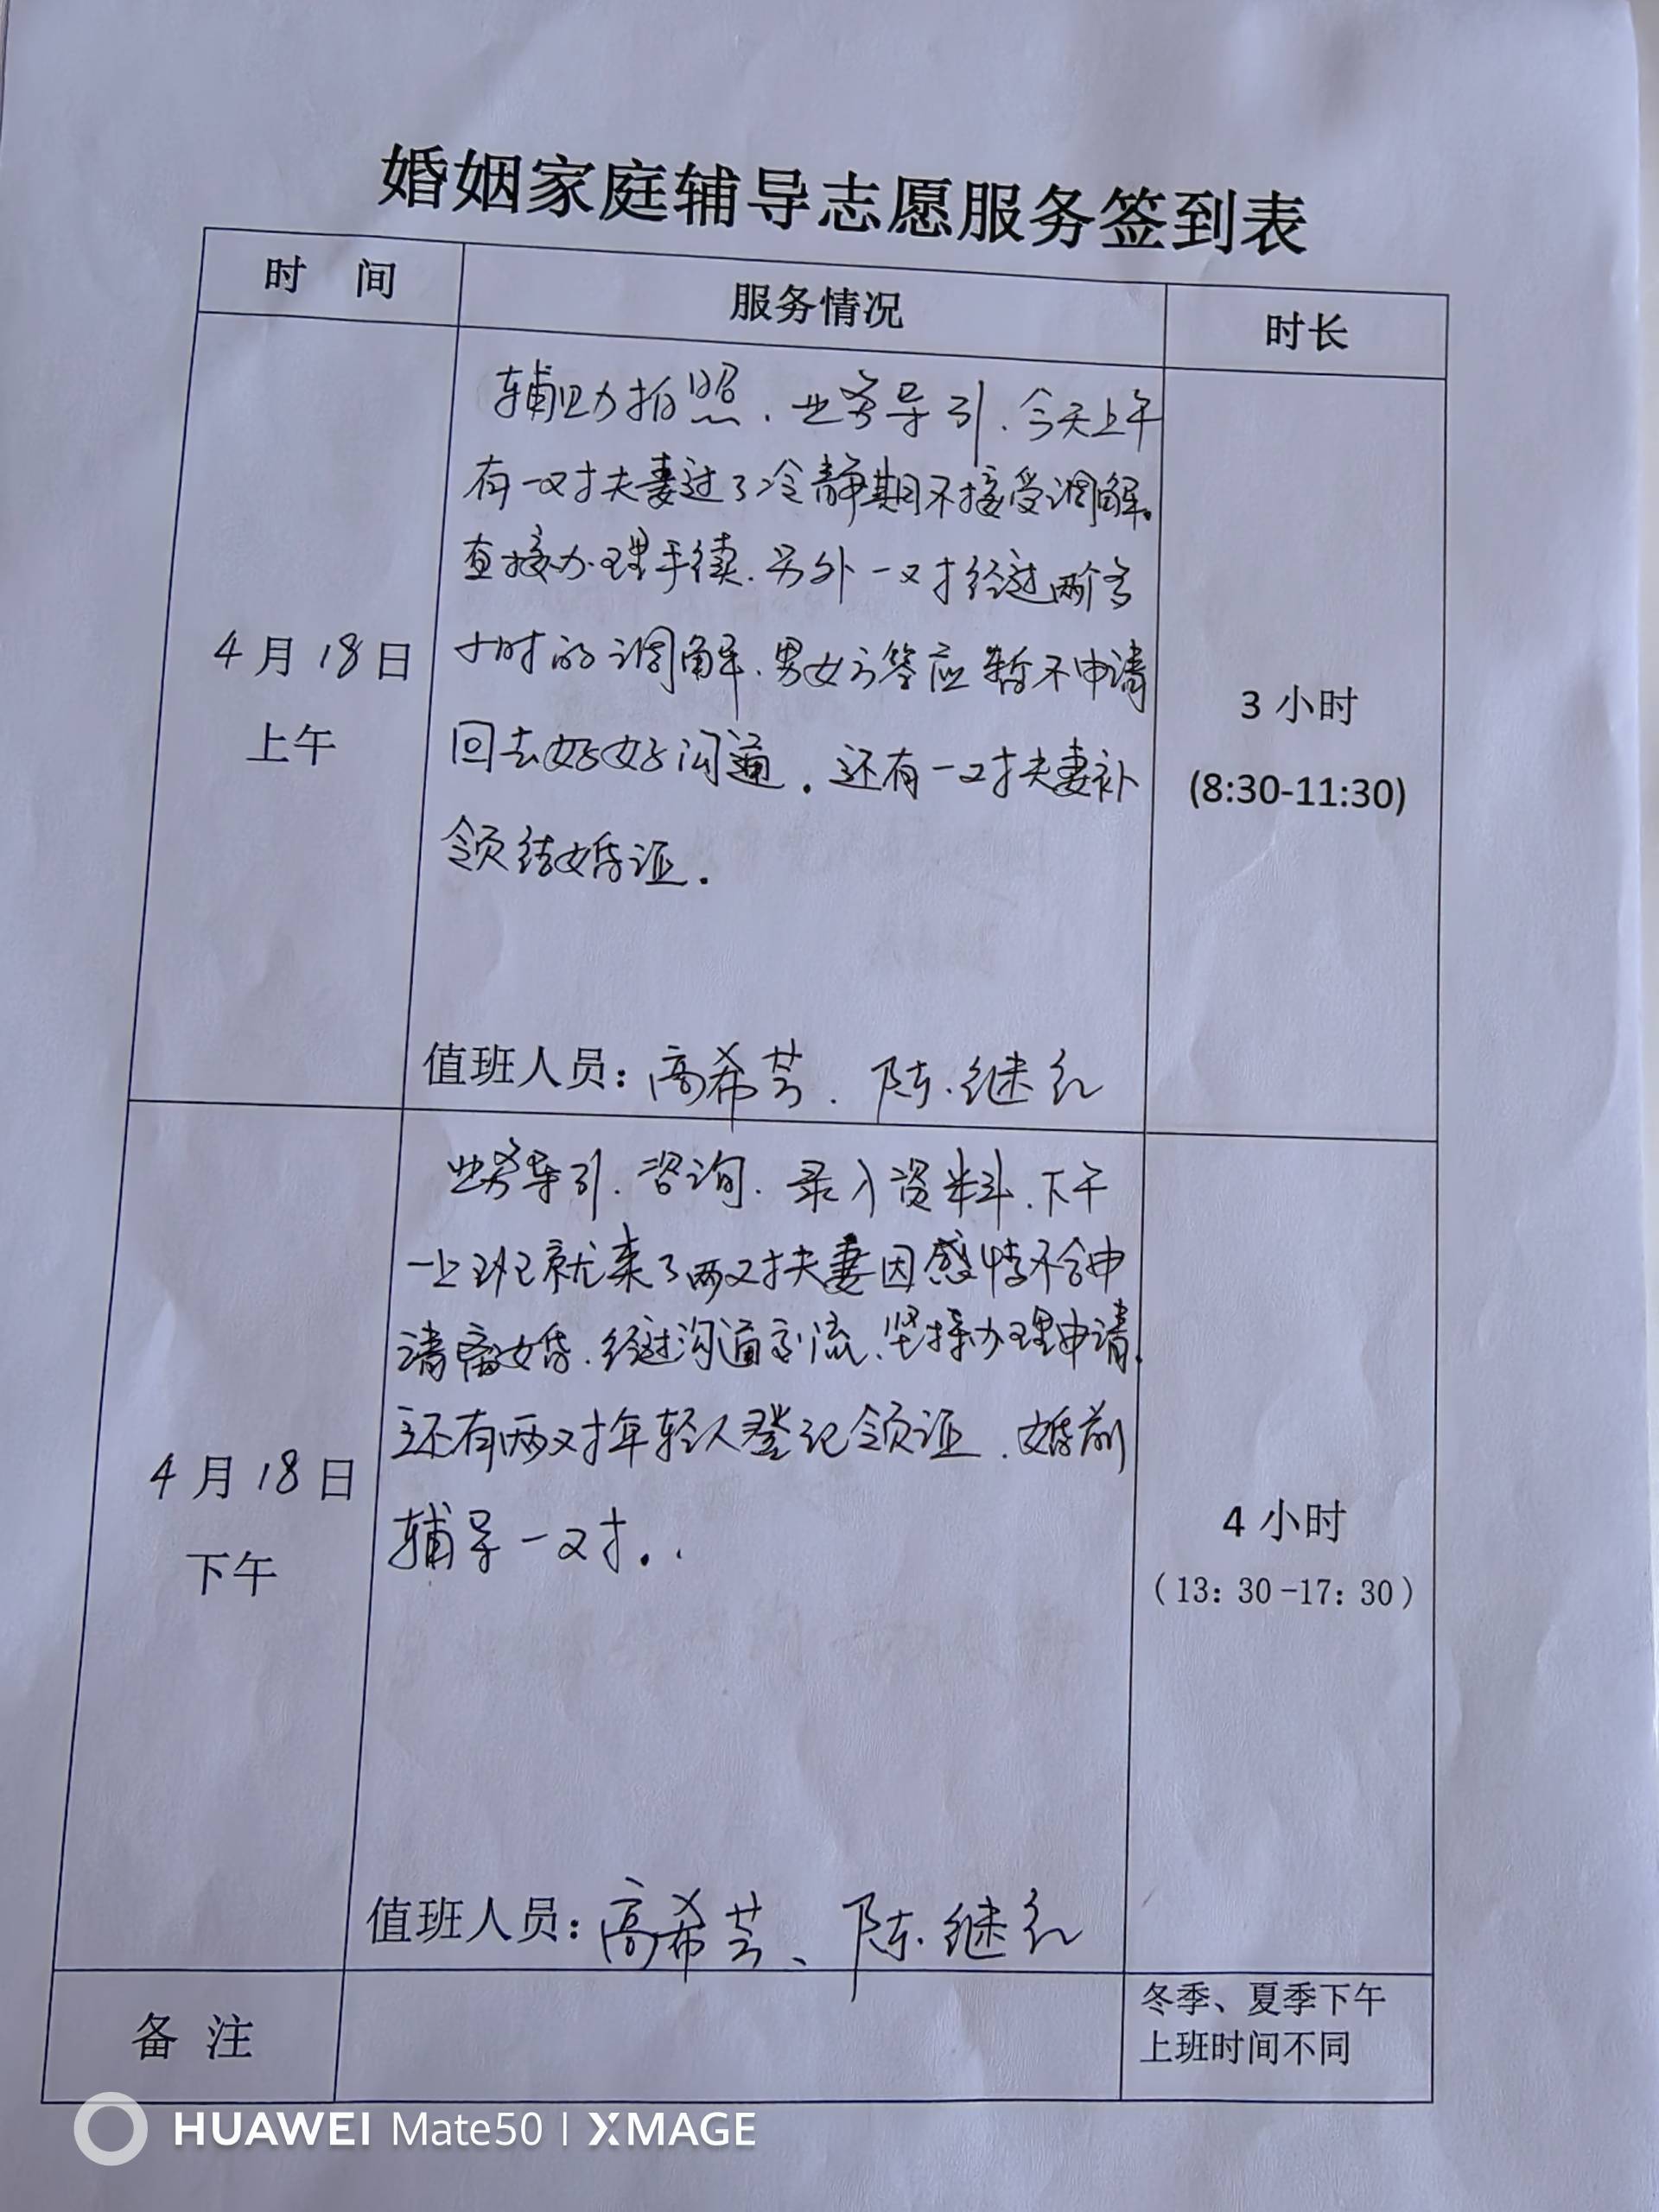 婚姻家庭辅导志愿服务签到表
时 间
服务情况
时长
4月18日
上午
辅助拍照.业务导引.今天上午
有一对夫妻过了冷静期不接受调解。
直接办理手续.另外一对经过两个多
小时的调解.男女方答应暂不申请
回去好好沟通.还有一对夫妻补
领结婚证.
值班人员:高希芸.陈继红
3 小时
(8:30-11:30)
4月18日
下午
业务导引.咨询.录入资料.下午
一上班就来了两对夫妻因感情不合申
请离婚.经过沟通交流、坚持办理申请.
还有两对年轻人登记领证.婚前
辅导一对..
值班人员:高希芸、陈继红
4 小时
(13:30-17:30)
备 注
冬季、夏季下午
上班时间不同
HUAWEI Mate50 | XMAGE